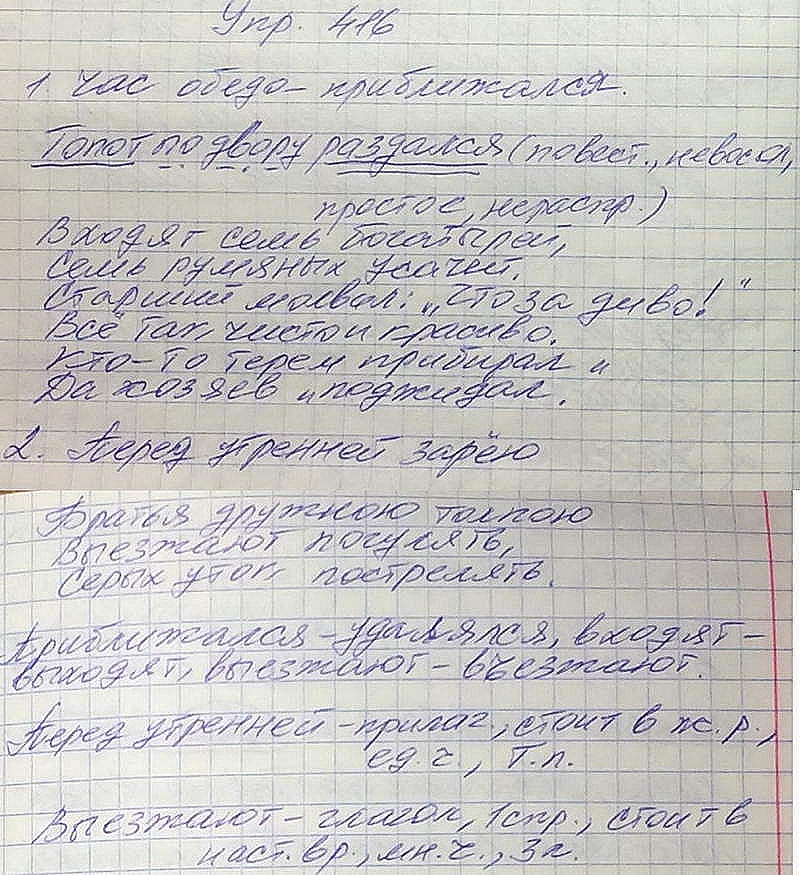 Упр. 416
1. Час обеда приближался.
Топот по двору раздался (повест., невоскл,
простое, нераспр.)
Входят семь богатырей,
Семь румяных усачей.
Старший молвил: „Что за диво!"
Всё так чисто и красиво.
Кто-то терем прибирал
Да хозяев поджидал.
2. Перед утренней зарёю
Братья дружною толпою
Выезжают погулять,
Серых уток пострелять.
Приближался - удалялся, входят -
выходят, выезжают - въезжают.
Перед утренней - прилаг., стоит в ж. р.,
ед. ч., Т.п.
Выезжают - глагол, 1 спр., стоит в
наст. вр., мн. ч., 3 л.